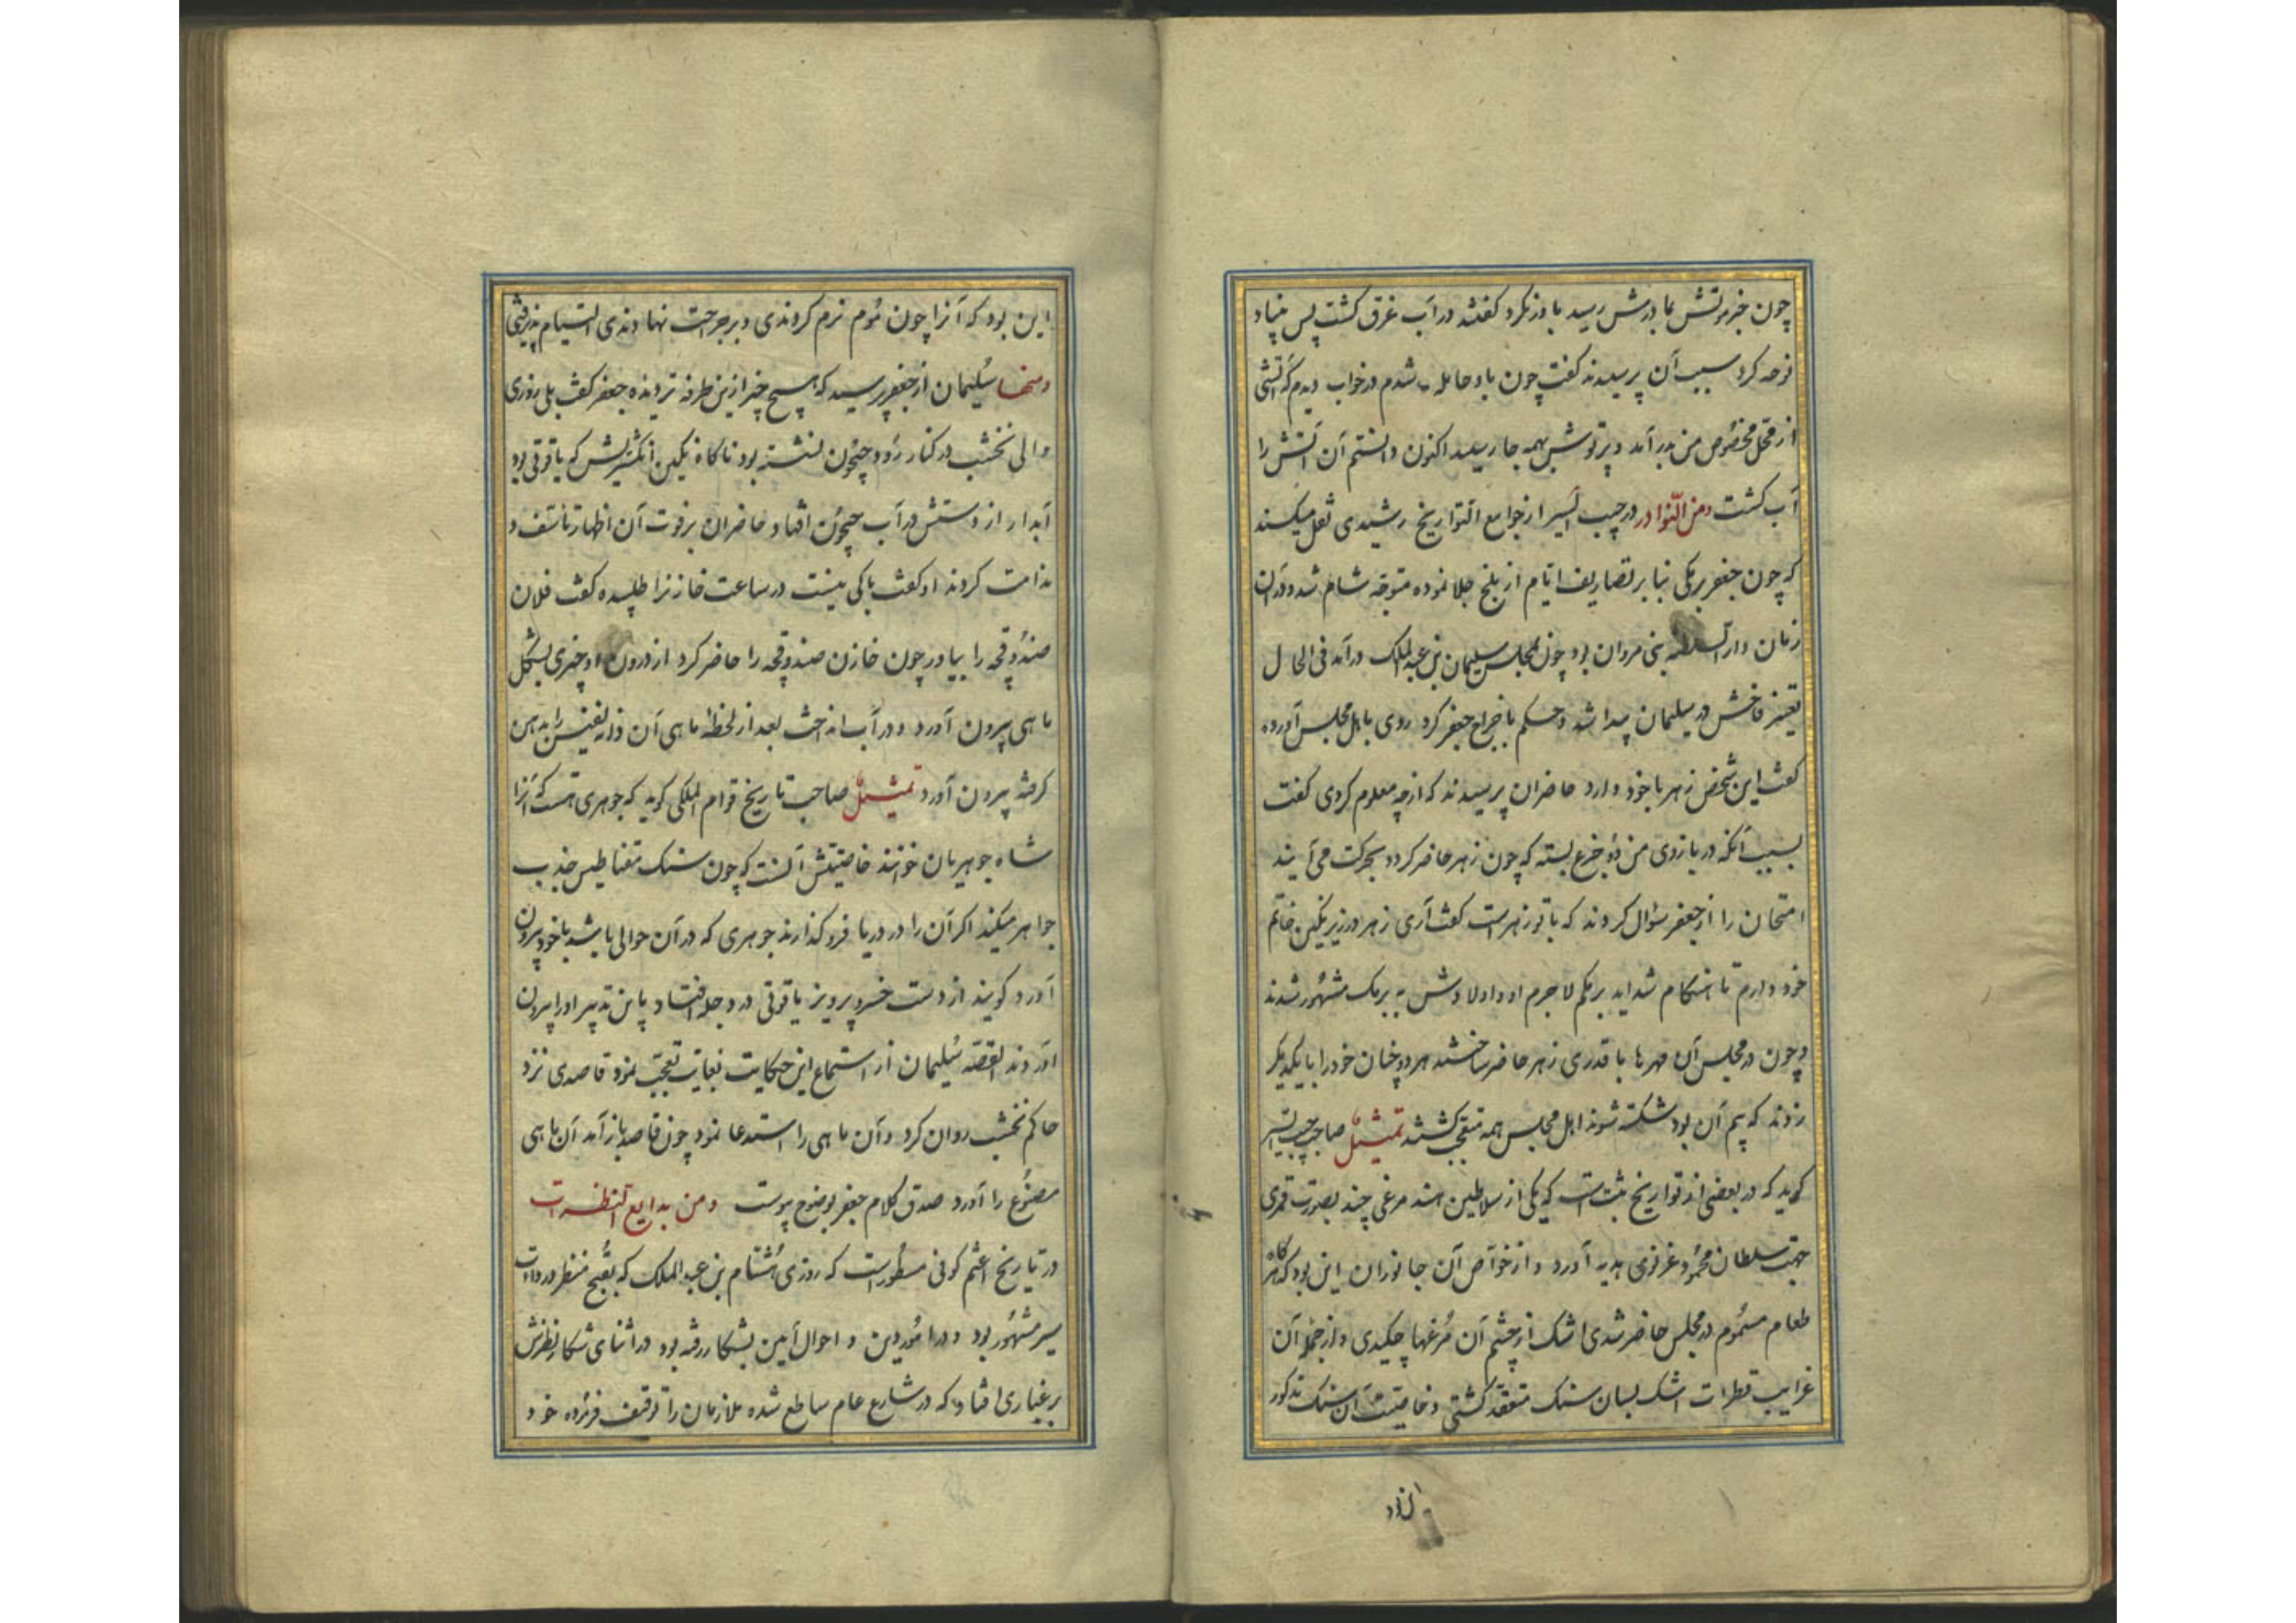 چون خبر موتش بمادرش رسید باور نکرد گفتند در آب غرق گشت پس بنیاد
نوحه کرد سبب آن پرسیدند گفت چون باو حامله شدم در خواب دیدم که آتشی
از محل مخصوص من بدر آمد و پرتوش بهمه جا رسید اکنون دانستم آن آتش را
آب کشت ومن النوادر در حبیب السیر از جوامع التواریخ رشیدی نقل میکند
که چون جعفر برمکی بنابر تصاریف ایام از بلخ جلا نموده متوجه شام شد و در آن
زمان دار السلطنه بنی مروان بود چون بمجلس سلیمان بن عبد الملک درآمد فی الحال
تغییر فاحش در سلیمان پیدا شد و حکم باخراج جعفر کرد روی باهل مجلس آورده
گفت این شخص زهر با خود دارد حاضران پرسیدند که از چه معلوم کردی گفت
بسبب آنکه در بازوی من دو جزع بسته که چون زهر حاضر کردد بحرکت می آیند
امتحان را از جعفر سؤال کردند که با تو زهر است گفت آری زهر در زیر نگین خاتم
خود دارم تا هنگام شداید برمکم لاجرم او و اولادش به برمک مشهور شدند
و چون در مجلس آن مهرها با قدری زهر حاضر ساختند هر دو چنان خود را با یکدیگر
زدند که بیم آن بود شکسته شوند اهل مجلس همه متعجب گشتند تمثیل صاحب حبیب السیر
گوید که در بعضی از تواریخ ثبت است که یکی از سلاطین هند مرغی چند بصورت قمری
جهت سلطان محمود غزنوی هدیه آورد و از خواص آن جانوران این بود که هرگاه
طعام مسموم در مجلس حاضر شدی اشک از چشم آن مرغها چکیدی و از جمله آن
غرایب قطرات اشک بسان سنک منعقد گشتی و خاصیت آن سنک مذکور
این بود که آنرا چون موم نرم کردندی و بر جراحت نهادندی التیام پذیرفتی
ومنها سلیمان از جعفر پرسید که هیچ چیز ازین طرفه تر دیده جعفر گفت بلی روزی
والی نخشب در کنار رود جیحون نشسته بود ناگاه نگین انگشتریش که یاقوتی بود
آبدار از دستش در آب جیحون افتاد حاضران بر فوت آن اظهار تاسف و
ندامت کردند او گفت باکی نیست در ساعت خازنرا طلبیده گفت فلان
صندوقچه را بیاور چون خازن صندوقچه را حاضر کرد از درون او چیزی بشکل
ماهی بیرون آورد و در آب انداخت بعد از لحظهٔ ماهی آن دانه نفیس را بدهن
گرفته بیرون آورد تمثیل صاحب تاریخ قوام الملکی گوید که جوهری هست که آنرا
شاه جوهریان خوانند خاصیتش آنست که چون سنک مغناطیس جذب
جواهر میکند اگر آن را در دریا فرو گذارند جوهری که در آن حوالی باشد با خود بیرون
آورد گویند از دست خسرو پرویز یاقوتی در دجله افتاد باین تدبیر او را بیرون
آوردند القصه سلیمان از استماع این حکایت بغایت تعجب نمود قاصدی نزد
حاکم نخشب روان کرد و آن ماهی را استدعا نمود چون قاصد باز آمد آن ماهی
مصنوع را آورد صدق کلام جعفر بوضوح پیوست ومن بدایع النظرات
در تاریخ اعثم کوفی مسطور است که روزی هشام بن عبد الملک که بقبح منظر و رداءت
سیر مشهور بود و در امور دین و احوال آیین بشکار رفته بود در اثنای شکار نظرش
بر غباری افتاد که در شارع عام ساطع شده ملازمان را توقیف فرموده خود